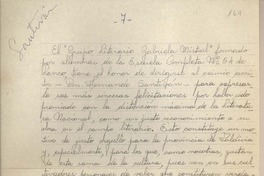 164
- 7 -
Santiván
El "Grupo Literario Gabriela Mistral" formado
por alumnas de la Escuela Completa Nº 64 de
tiene el honor de dirigirse al eximio
Don Fernando Santiván - para expresar
le sus más sinceras felicitaciones por haber sido
premiado con la distinción máxima de la Litera
tura Nacional, como un justo reconocimiento a su
obra en el campo literario. Esto constituye un mo
tivo de justo orgullo para la provincia de
y, especialmente, para los que, como nosotras, gustan
de esta rama de la cultura, pues ven en sus